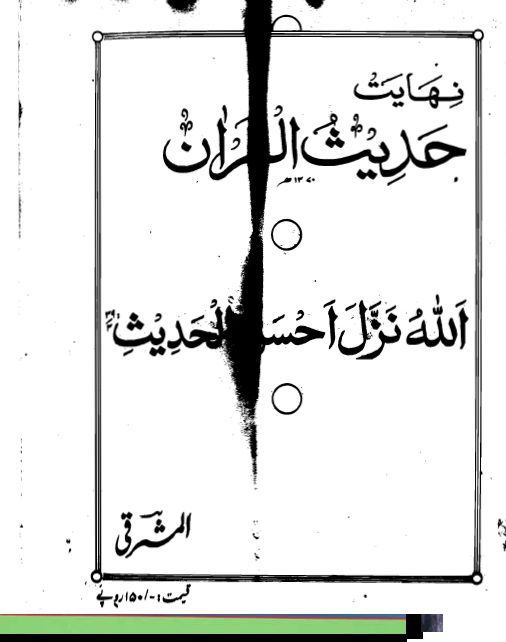 نِهَايَتْ
حَدِيثُ الْقُرْاٰنِ
۱۳۷۰ھ
اَللّٰهُ نَزَّلَ اَحْسَنَ الْحَدِيْثِ
المشرقی
قیمت :-/۱۵۰روپے